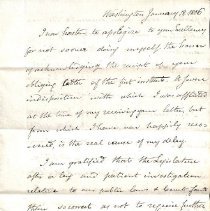 Washington January 18, 1826
I now hasten to apologize to your Excellency
for not sooner doing myself the honor
of acknowledging the receipt of your
obliging letter of the first instant. A severe
indisposition with which I was afflicted
at the time of my receiving your letter, but
from which I have now happily recov-
ered, is the real cause of my delay.
I am gratified that the Legislature
after a long and patient investigation
relative to our public laws &
their so as not to require further